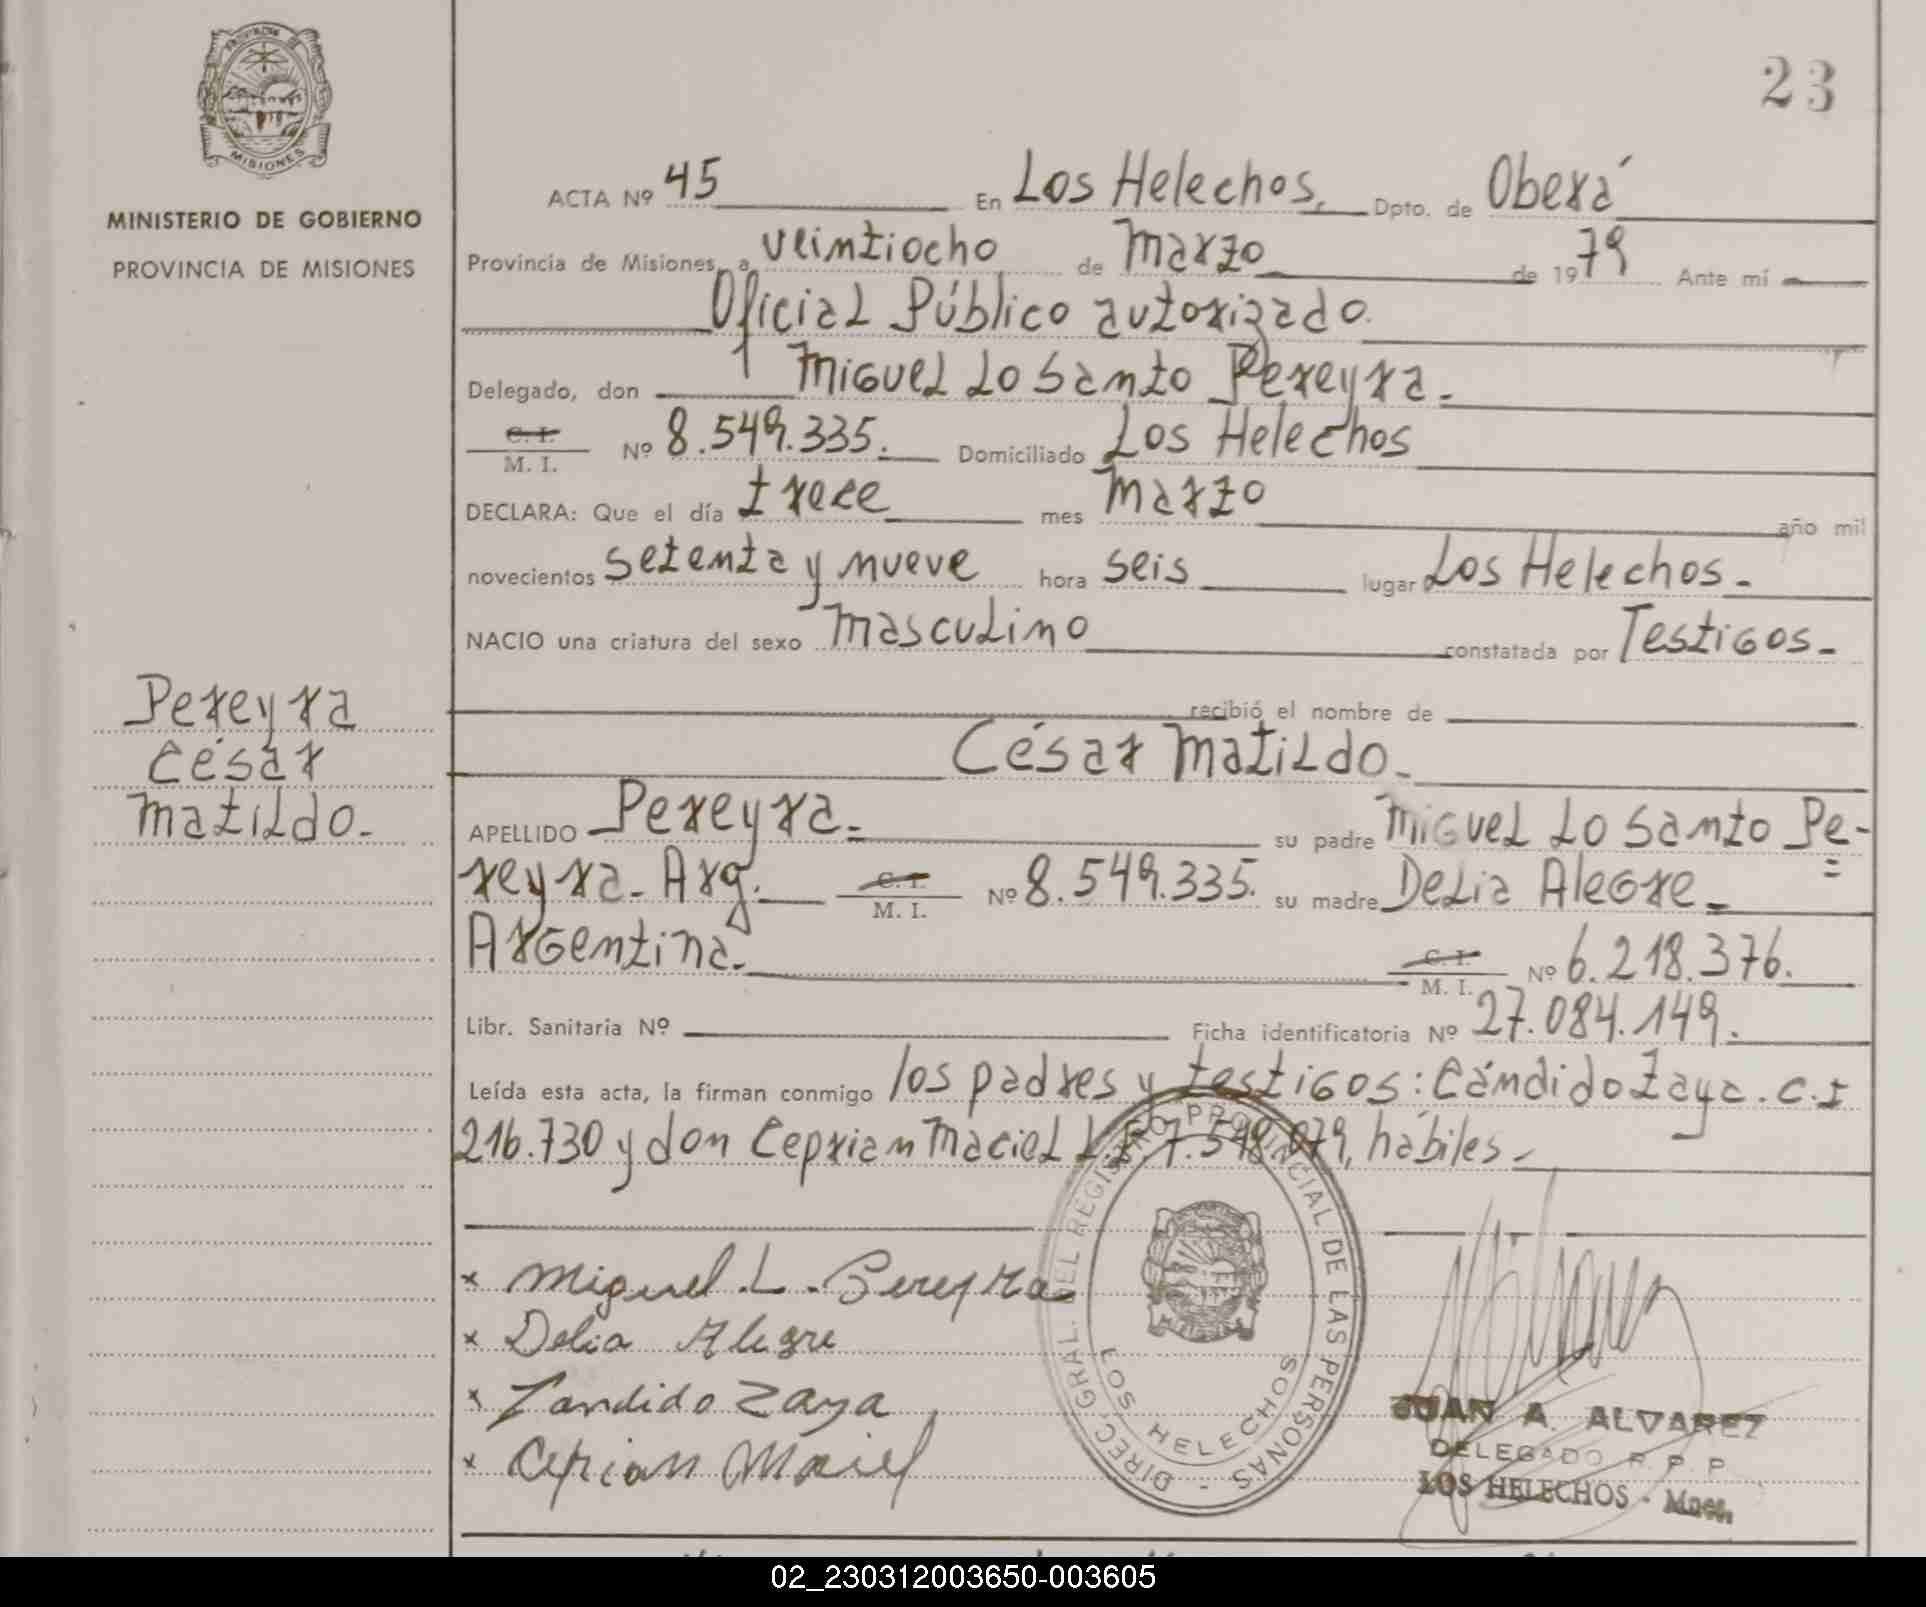 PROVINCIA DE
MISIONES
MINISTERIO DE GOBIERNO
PROVINCIA DE MISIONES
23
ACTA Nº 45 En Los Helechos, Dpto. de Oberá
Provincia de Misiones, a veintiocho de Marzo de 1979 Ante mí
Oficial Público autorizado.
Delegado, don Miguel Lo Santo Pereyra.
C. I.
M. I. Nº 8.549.335. Domiciliado Los Helechos
DECLARA: Que el día trece mes Marzo año mil
novecientos setenta y nueve hora seis lugar Los Helechos.
NACIO una criatura del sexo Masculino constatada por Testigos.
recibió el nombre de
César Matildo.
Pereyra
César
Matildo.
APELLIDO Pereyra. su padre Miguel Lo Santo Pe=
reyra. Arg. C. I. M. I. Nº 8.549.335. su madre Delia Alegre
Argentina. C. I. M. I. Nº 6.218.376.
Libr. Sanitaria Nº Ficha identificatoria Nº 27.084.149.
Leída esta acta, la firman conmigo los padres y testigos: Cándido Zaya. C.I
216.730 y don Ceprian Maciel L.E. 7.548.079, hábiles.
x Miguel L. Pereyra
x Delia Alegre
x Candido Zaya
x Ceprian Maciel
DIREC. GRAL. DEL REGISTRO PROVINCIAL DE LAS PERSONAS
LOS HELECHOS
JUAN A. ALVAREZ
DELEGADO R. P. P.
LOS HELECHOS - Mnes.
02_230312003650-003605